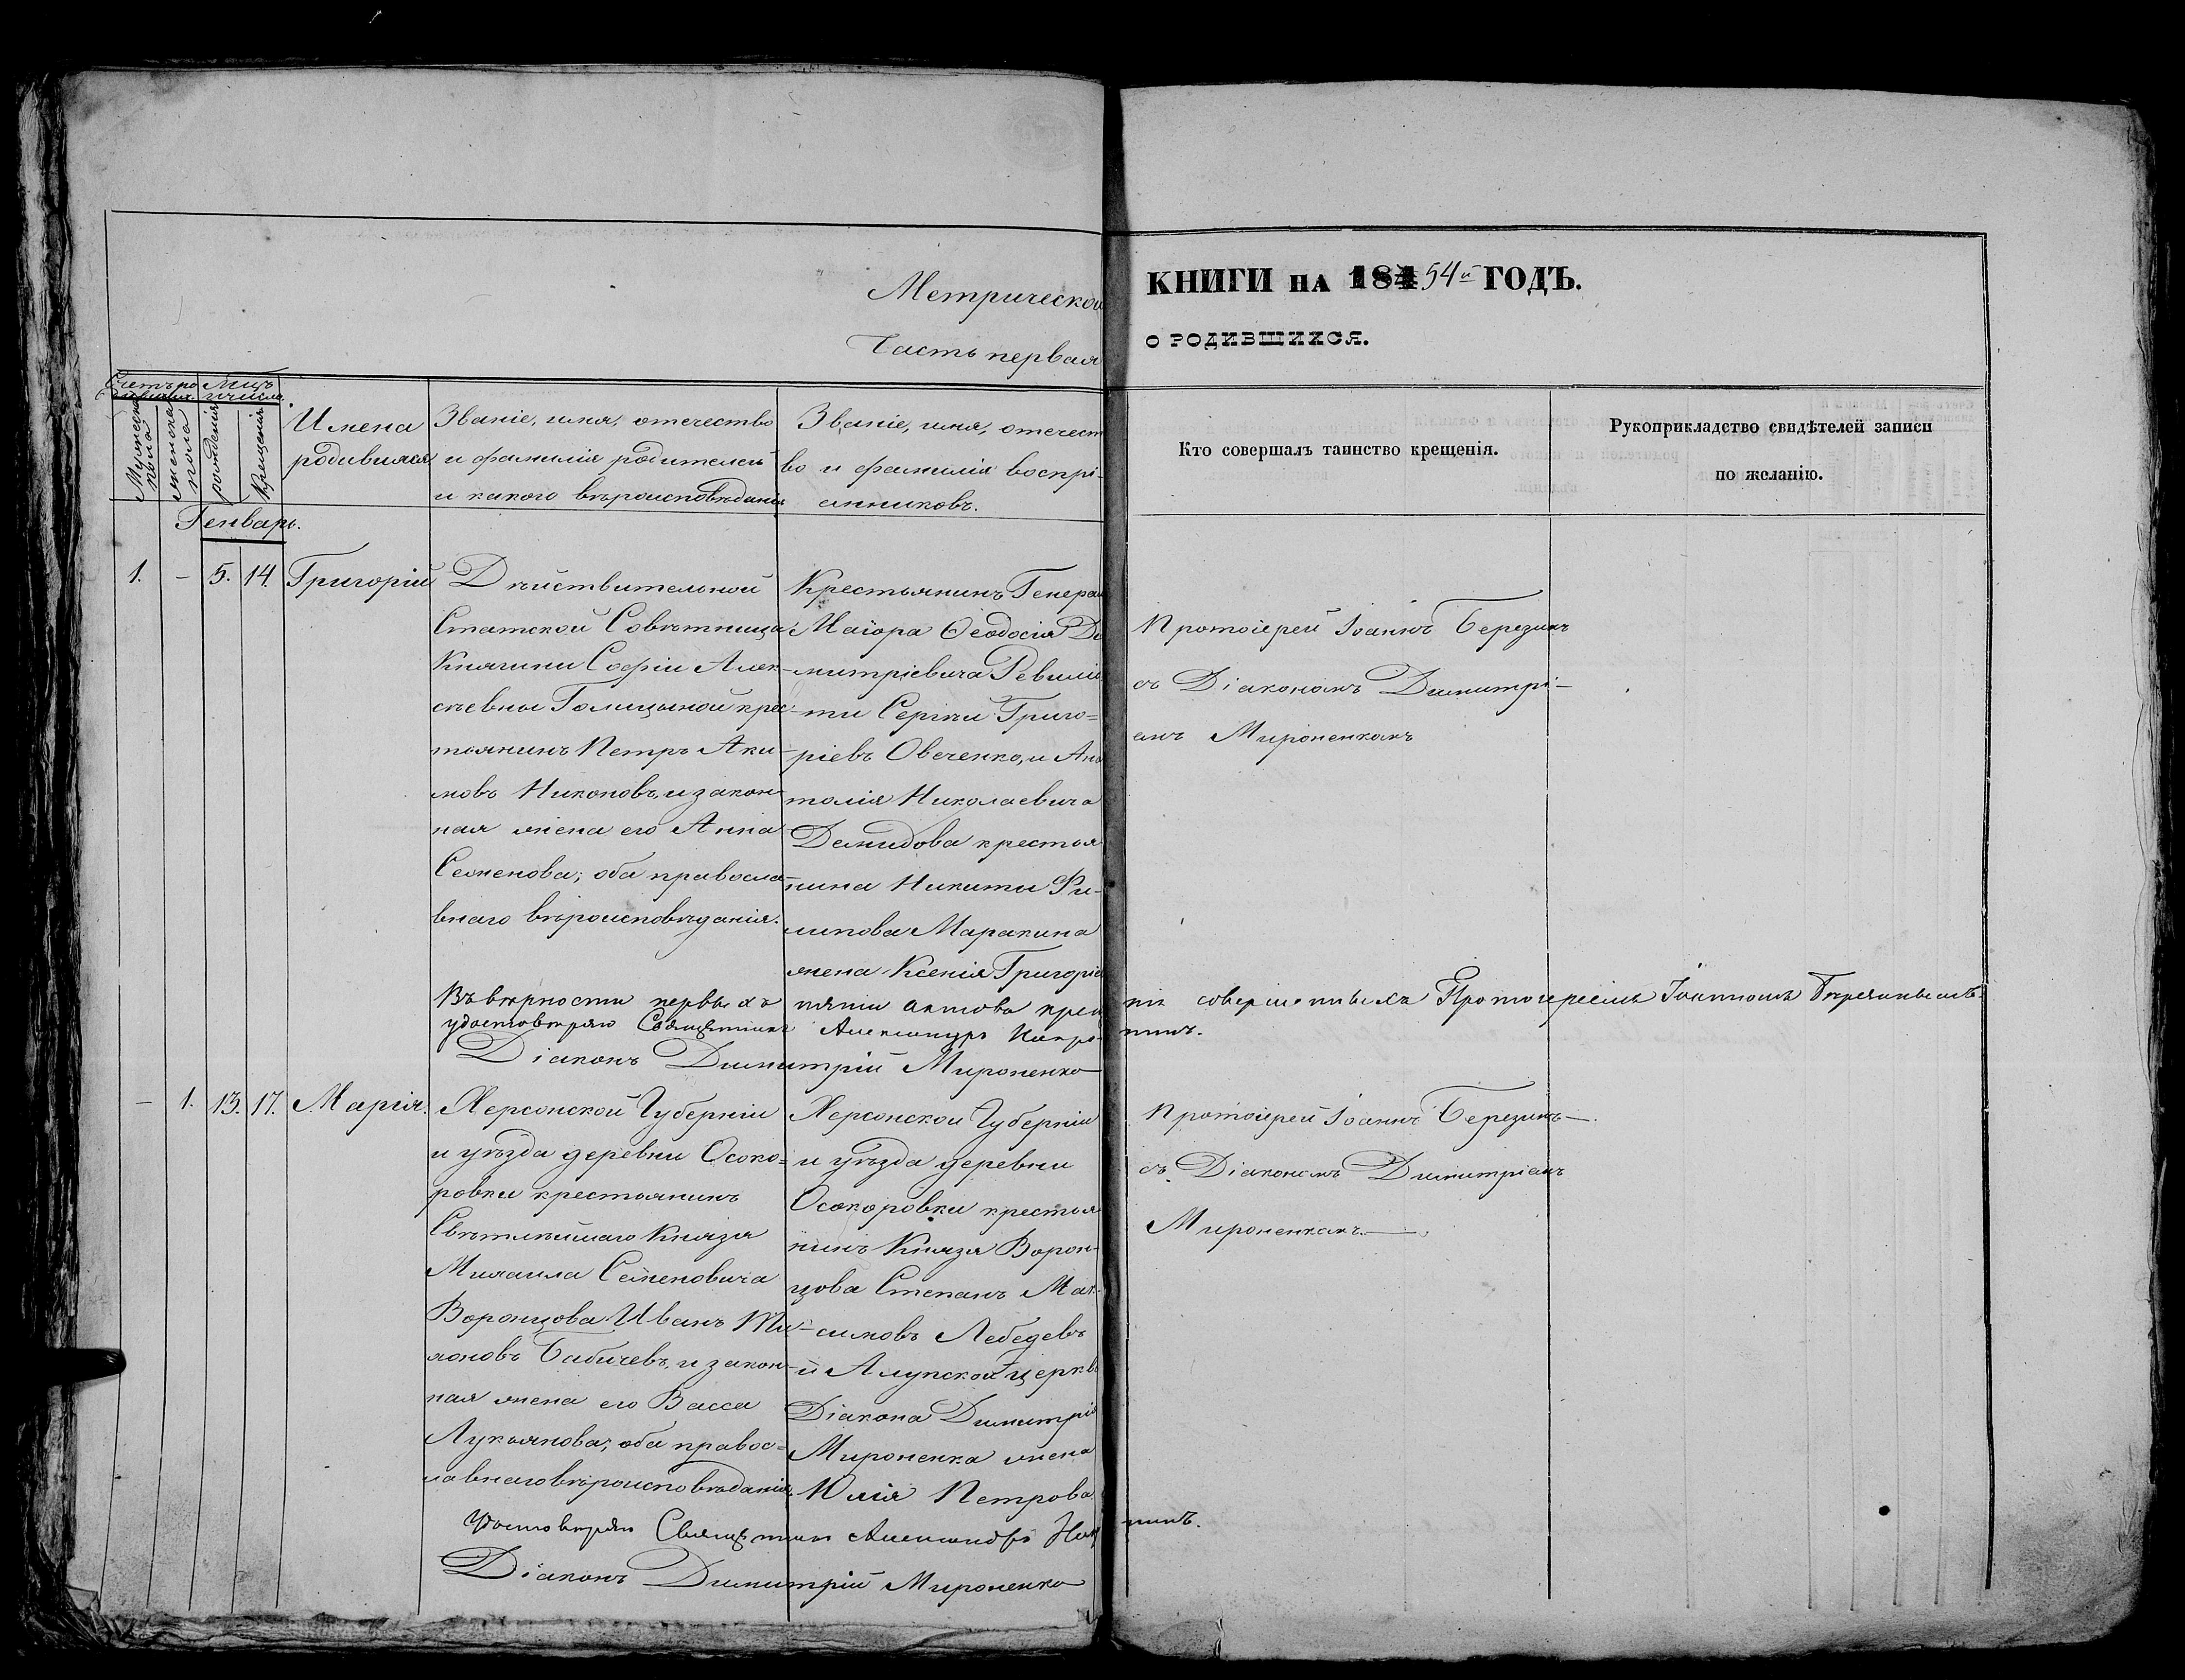 Метрической КНИГИ НА 184 54й ГОДЪ.
Часть первая О РОДИВШИХСЯ.
Счетъ ро
Мужеска пола
женска пола
рожденія
крещенія
Имена
родившихся
Званіе, имя, отечество
и фамилія родителей
и какого вѣроисповѣданія
Званіе, имя, отечест
во и фамилія воспрі-
емниковъ.
Кто совершалъ таинство крещенія.
Рукоприкладство свидѣтелей записи
по желанію.
Генварь.
1. – 5. 14. Григорій
Дѣйствительной
Статской Совѣтницы
Княгини Софіи Алек-
сѣевны Голицыной крес-
тьянинъ Петръ Аки-
мовъ Никоновъ, и закон-
ная жена его Анна
Семенова; оба правосла-
внаго вѣроисповѣданія.
Крестьянинъ Генерал
Маіора Ѳеодосія Ди
митріевича Ревиліо
ти Сергѣй Григо=
ріевъ Овченко, и Ана
толія Николаевича
Демидова крестья
нина Никиты Фи-
липова Маракина
жена Ксенія Григоріе
Протоіерей Іоаннъ Березинъ
съ Діакономъ Димитрі-
емъ Мироненкомъ
Въ вѣрности первыхъ пяти актовъ крещ нія совершенныхъ Протоіереемъ Іоанномъ Березинымъ
удостовѣряю Священникъ Александръ
Діаконъ Димитрій Мироненко
– 1. 13. 17. Марія.
Херсонской Губерніи
и уѣзда деревни Осоко=
ровки крестьянинъ
Свѣтлѣйшаго Князя
Михаила Семеновича
Воронцова Иванъ Ти-
хоновъ Бабичевъ, и закон-
ная жена его Васса
Лукьянова; оба правос=
лавнаго вѣроисповѣданія.
Херсонской Губерніи
и уѣзда деревни
Осокоровки крестья
нинъ Князя Ворон-
цова Степанъ Мак-
симовъ Лебедевъ
и Алупской церкв
Діакона Димитрія
Мироненка жена
Юлія Петрова
Протоіерей Іоаннъ Березинъ
съ Діакономъ Димитріемъ
Мироненкомъ.
Удостовѣряю Священникъ Александръ
Діаконъ Димитрій Мироненко